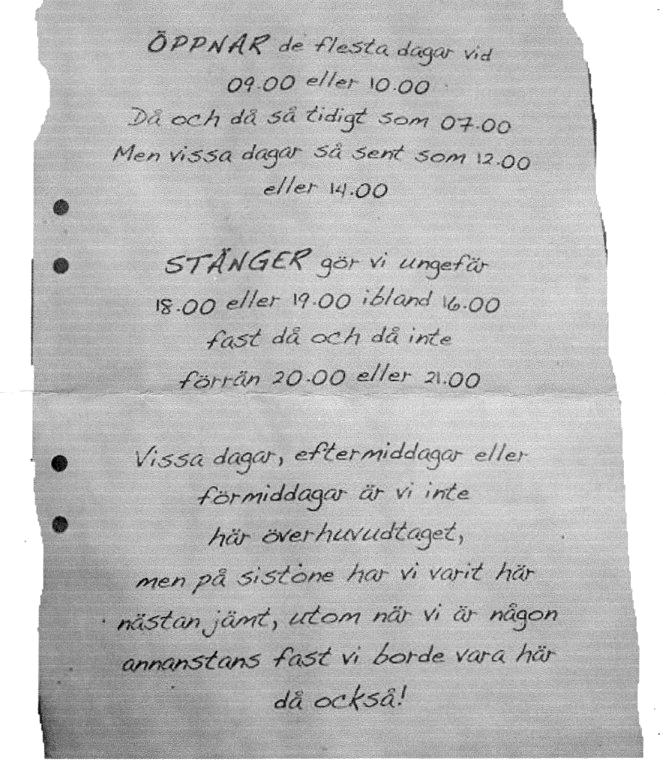 ÖPPNAR de flesta dagar vid
09.00 eller 10.00
Då och då så tidigt som 07.00
Men vissa dagar så sent som 12.00
eller 14.00
STÄNGER gör vi ungefär
18.00 eller 19.00 ibland 16.00
fast då och då inte
förrän 20.00 eller 21.00
Vissa dagar, eftermiddagar eller
förmiddagar är vi inte
här överhuvudtaget,
men på sistone har vi varit här
nästan jämt, utom när vi är någon
annanstans fast vi borde vara här
då också!